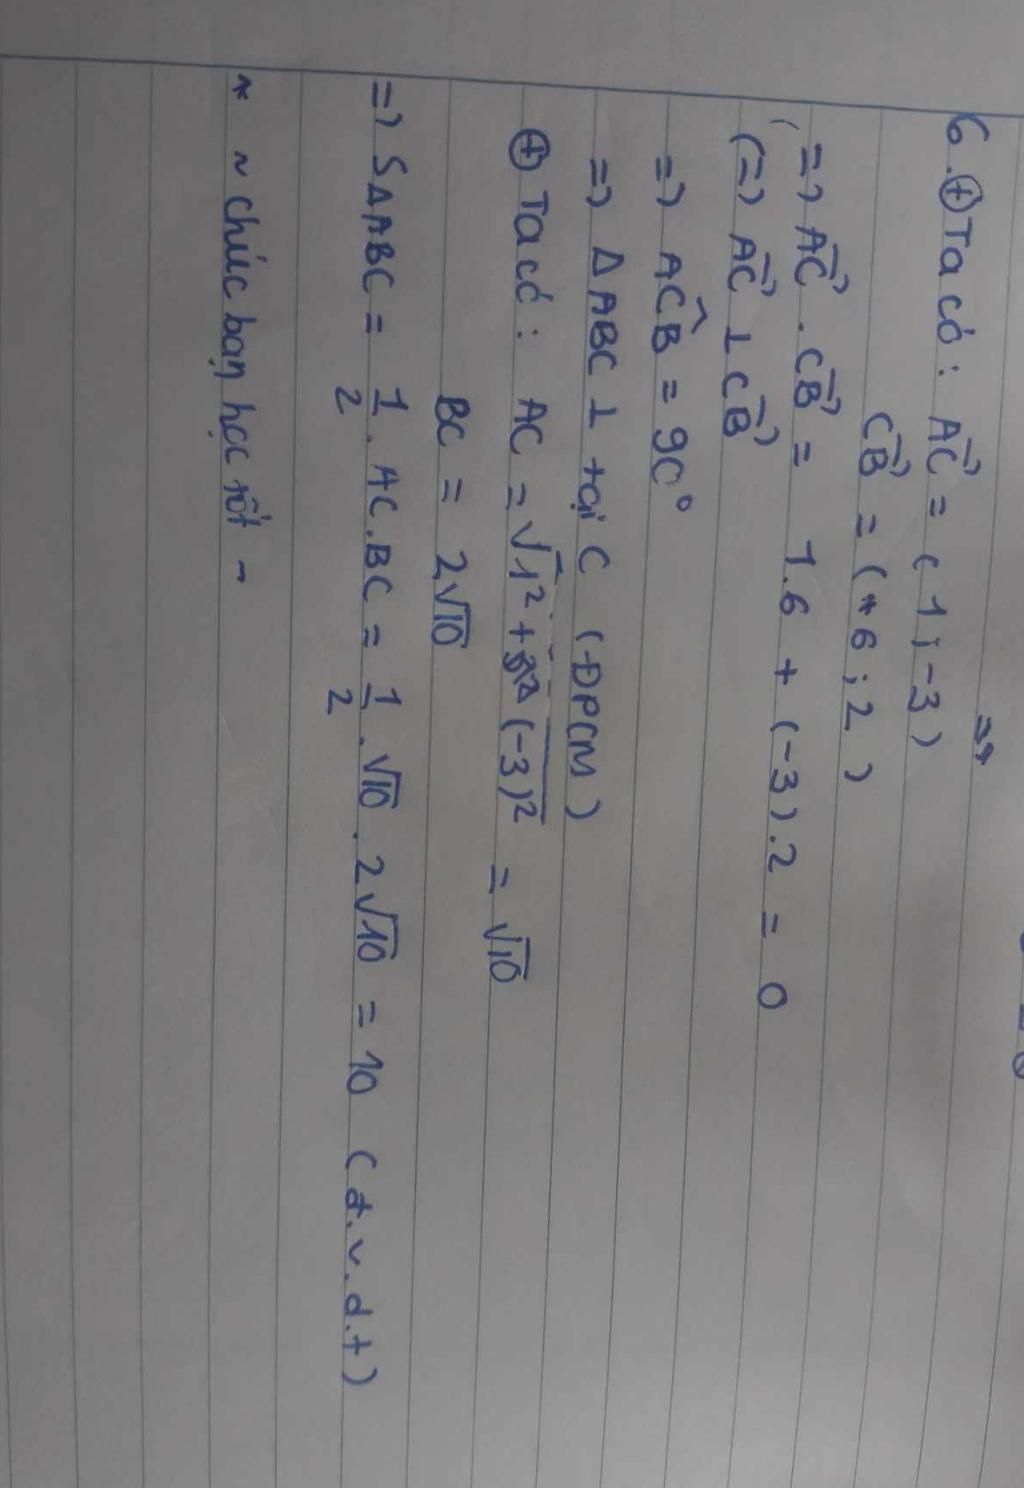 6. ⊕ Ta có: AC⃗ = (1; -3)
CB⃗ = (6; 2)
=> AC⃗ . CB⃗ = 1.6 + (-3).2 = 0
(=) AC⃗ ⊥ CB⃗
=> AĈB = 90°
=> ΔABC ⊥ tại C (ĐPCM)
⊕ Ta có: AC = √1² + (-3)² = √10
BC = 2√10
=> SΔABC = 1/2 . AC.BC = 1/2 . √10 . 2√10 = 10 (đ.v.d.t)
* ~ chúc bạn học tốt ~